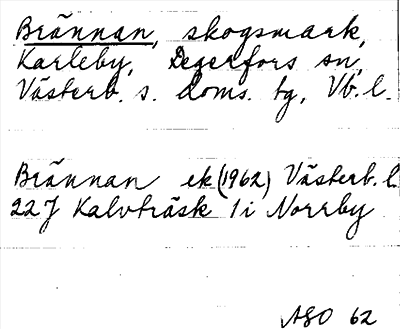 Brännan, skogsmark,
Karleby, Degerfors sn,
Västerb. s. doms. tg, Vb. l.
Brännan ek (1962) Västerb. l.
22J Kalvträsk 1 i Norrby
ASO 62